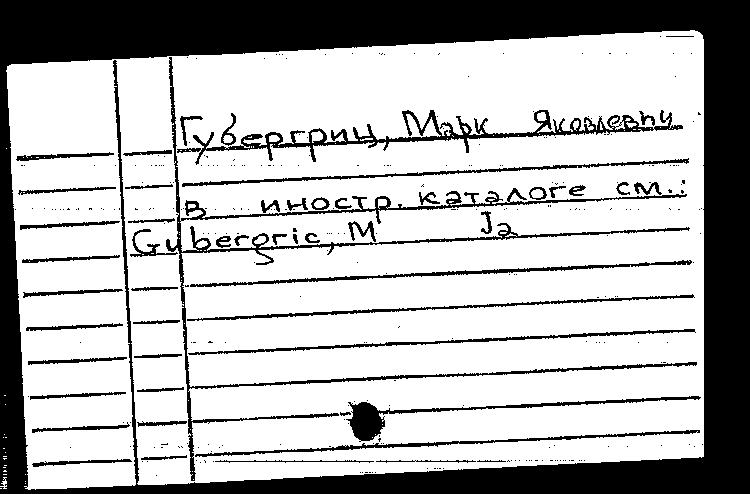 Губергриц, Марк Яковлевич
в иностр. каталоге см.:
Gubergric, M Ja